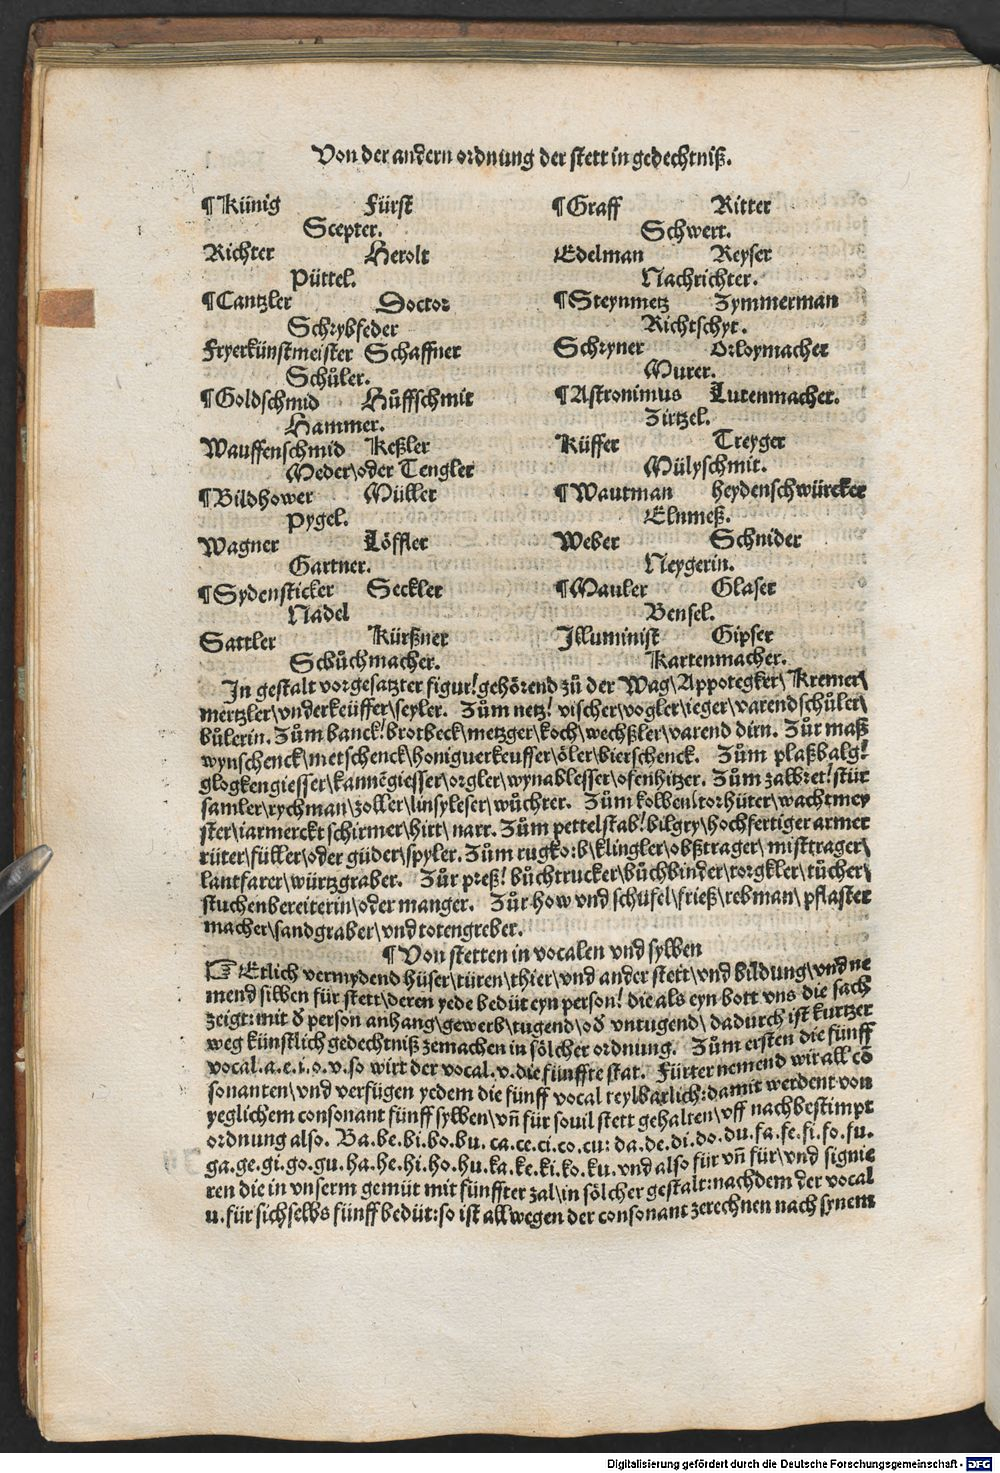 Von der andern ordnung der stett in gedechtniß.
¶ Künig Fürst
Scepter.
Richter Herolt
Püttel.
¶ Cantzler Doctor
Schrybfeder
Fryerkünstmeister Schaffner
Schůler.
¶ Goldschmid Hůffschmit
Hammer.
Wauffenschmid Keßler
Meder\oder Tengler
¶ Bildhower Müller
Pygel.
Wagner Löffler
Gartner.
¶ Sydensticker Seckler
Nadel
Sattler Kürßner
Schůchmacher.
¶ Graff Ritter
Schwert.
Edelman Reyser
Nachrichter.
¶ Steynmetz Zymmerman
Richtschyt.
Schryner Orloymacher
Murer.
¶ Astronimus Lutenmacher.
Zirtzel.
Küffer Treyger
Mülyschmit.
¶ Wautman heydenschwürcker
Elnmeß.
Weber Schnider
Neygerin.
¶ Mauler Glaser
Bensel.
Jlluminist Gipser
Kartenmacher.
Jn gestalt vorgesatzter figur! gehörend zů der Wag\Appotegker\Kremer\
mertzler\vnderkeüffer\seyler. Zům netz! vischer\vogler\ieger\varendschůler\
bůlerin. Zům banck! brotbeck\metzger\koch\wechßler\varend dirn. Zůr maß
wynschenck\metschenck\honiguerkeuffer\öler\bierschenck. Zům plaßbalg!
glogkengiesser\kannēgiesser\orgler\wynablesser\ofenhitzer. Zům zalbret! stür
samler\rychman\zoller\linsyleser\wůchrer. Zům kolben! torhüter\wachtmey
ster\iarmerckt schirmer\hirt\narr. Zům pettelstab! bilgry\hochfertiger armer
rüter\füller\oder güder\spyler. Zům rugkorb\klingler\obßtrager\misttrager\
lantfarer\würtzgraber. Zůr preß! bůchtrucker\bůchbinder\torgkler\tücher\
stuchenbereiterin\oder manger. Zůr how vnd schüfel\frieß\rebman\pflaster
macher\sandgraber\vnd totengreber.
¶ Von stetten in vocalen vnd sylben
☞ Etlich vermydend hüser\türen\thier\vnd ander stett\vnd bildung\vnd ne
mend silben für stett\deren yede bedüt eyn person! die als eyn bott vns die sach
zeigt: mit d̄ person anhang\gewerb\tugend\od̄ vntugend\dadurch ist kurtzer
weg künstlich gedechtniß zemachen in sölcher ordnung. Zům ersten die fünff
vocal.a.e.i.o.v.so wirt der vocal.v.die fünffte stat. Fürter nemend wir all cō
sonanten\vnd verfügen yedem die fünff vocal teylbarlich: damit werdent von
yeglichem consonant fünff sylben\vn̄ für souil stett gehalten\vff nachbestimpt
ordnung also. Ba.be.bi.bo.bu. ca.ce.ci.co.cu: da.de.di.do.du.fa.fe.fi.fo.fu.
ga.ge.gi.go.gu.ha.he.hi.ho.hu.ka.ke.ki.ko.ku.vnd also für vn̄ für\vnd signie
ren die in vnserm gemüt mit fünffter zal\in sölcher gestalt: nachdem der vocal
u.für sich selbs fünff bedüt: so ist allwegen der consonant zerechnen nach synem
Digitalisierung gefördert durch die Deutsche Forschungsgemeinschaft - DFG